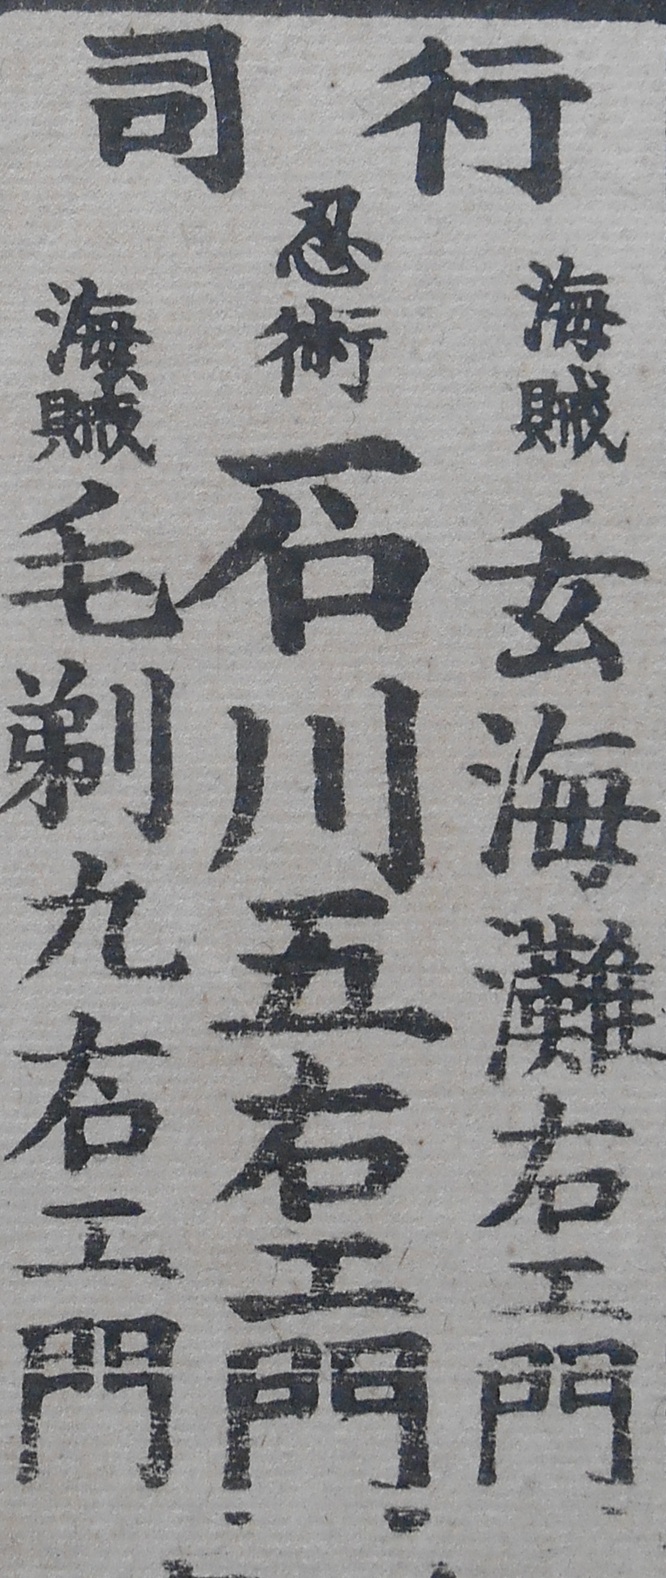 行司
海賊 玄海灘右エ門
忍術 石川五右エ門
海賊 毛剃九右エ門